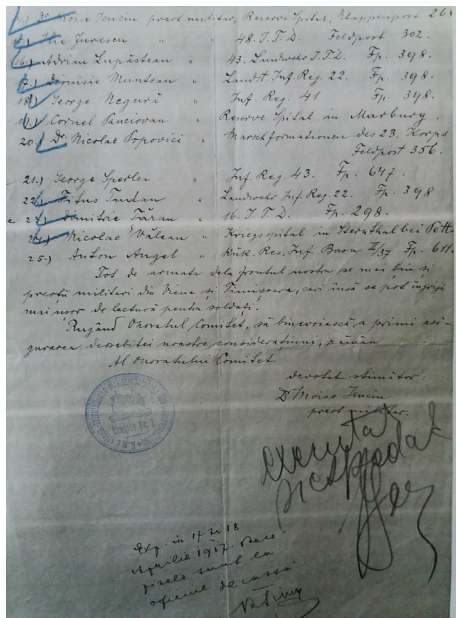 Dr Moise Ienciu preot militar, Reserve Spital, Etappenpost 26
15.) Ilie Jurescu " 48. I.T.D. Feldpost 302.
16.) Adrian Lupăștean " 43. Landwehr I.T.D. Fp. 398.
17.) Dionisie Muntean " Landst. Inf. Reg. 22. Fp. 398.
18.) George Negură " Inf. Reg. 41 Fp. 398.
19.) Cornel Panciovan " Reserve Spital in Marburg.
20.) Dr Nicolae Popovici " Marschformationen des 23. Korps
Feldpost 356.
21.) George Sperlea " Inf. Reg. 43. Fp. 647.
22.) Titus Tudan " Landwehr Inf. Reg. 22. Fp. 398
23.) Dimitrie Täran " 16. I.T.D. Fp. 298.
24.) Nicolae Vălean " Kriegsspital in bei Pett
25.) Anton Angel " Rük. Res. Inf. Baon II/37 Fp. 611.
Tot de armata dela frontul nostru se mai țin și
preoții militari din Viena și Timișoara, cari însă se pot îngriji
mai ușor de lectură pentru soldați.
Rugând Onoratul Comitet, să binevoiască a primi asi-
gurarea deosebitei noastre considerațiuni,
Al Onoratului Comitet
devotat stimător:
Dr Moise Ienciu
preot militar.
executat
Exp. in 17 și 18
Aprilie 1917.
sunt la
oficiul de